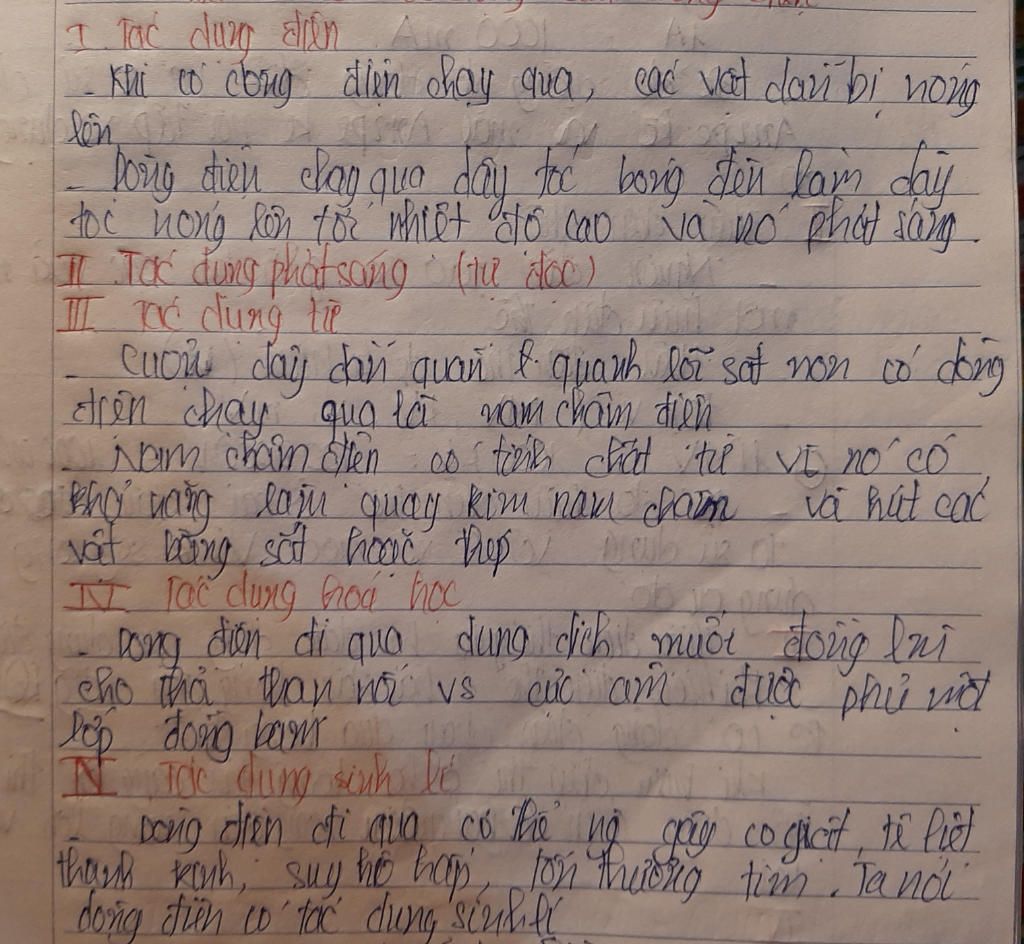 I Tác dụng điện
- Khi có dòng điện chạy qua, các vật dẫn bị nóng
lên
- Dòng điện chạy qua dây tóc bóng đèn làm dây
tóc nóng lên tới nhiệt độ cao và nó phát sáng.
II Tác dụng phát sáng (tự đọc)
III Tác dụng từ
- Cuộn dây dẫn quấn quanh lõi sắt non có dòng
điện chạy qua là nam châm điện
- Nam châm điện có tính chất từ vì nó có
khả năng làm quay kim nam châm và hút các
vật bằng sắt hoặc thép
IV Tác dụng hoá học
- Dòng điện đi qua dung dịch muối đồng
cho thỏi than nối vs cực âm được phủ một
lớp đồng bám
IV Tác dụng sinh lí
- Dòng điện đi qua cơ thể ng gây co giật, tê liệt
thanh kinh, suy hô hấp, tổn thương tim. Ta nói
dòng điện có tác dụng sinh lí